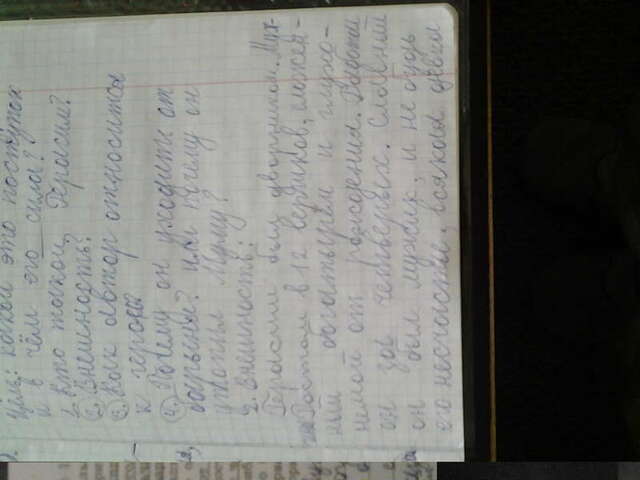 Цель: какой это поступок
и в чём его сила?
1. Кто такой Герасим?
2. Внешность?
3. Как автор относится
к герою?
4. Почему он уходить от
барыни? или почему он
утопил Муму?
2. Внешность:
Герасим был дворником. Муж-
Ростом в 12 вершков, сложен-
ный богатырём и глухо-
немой от рождения. Работал
он за четверых. Славный
он был мужик, и не будь
его несчастие, всякая девка